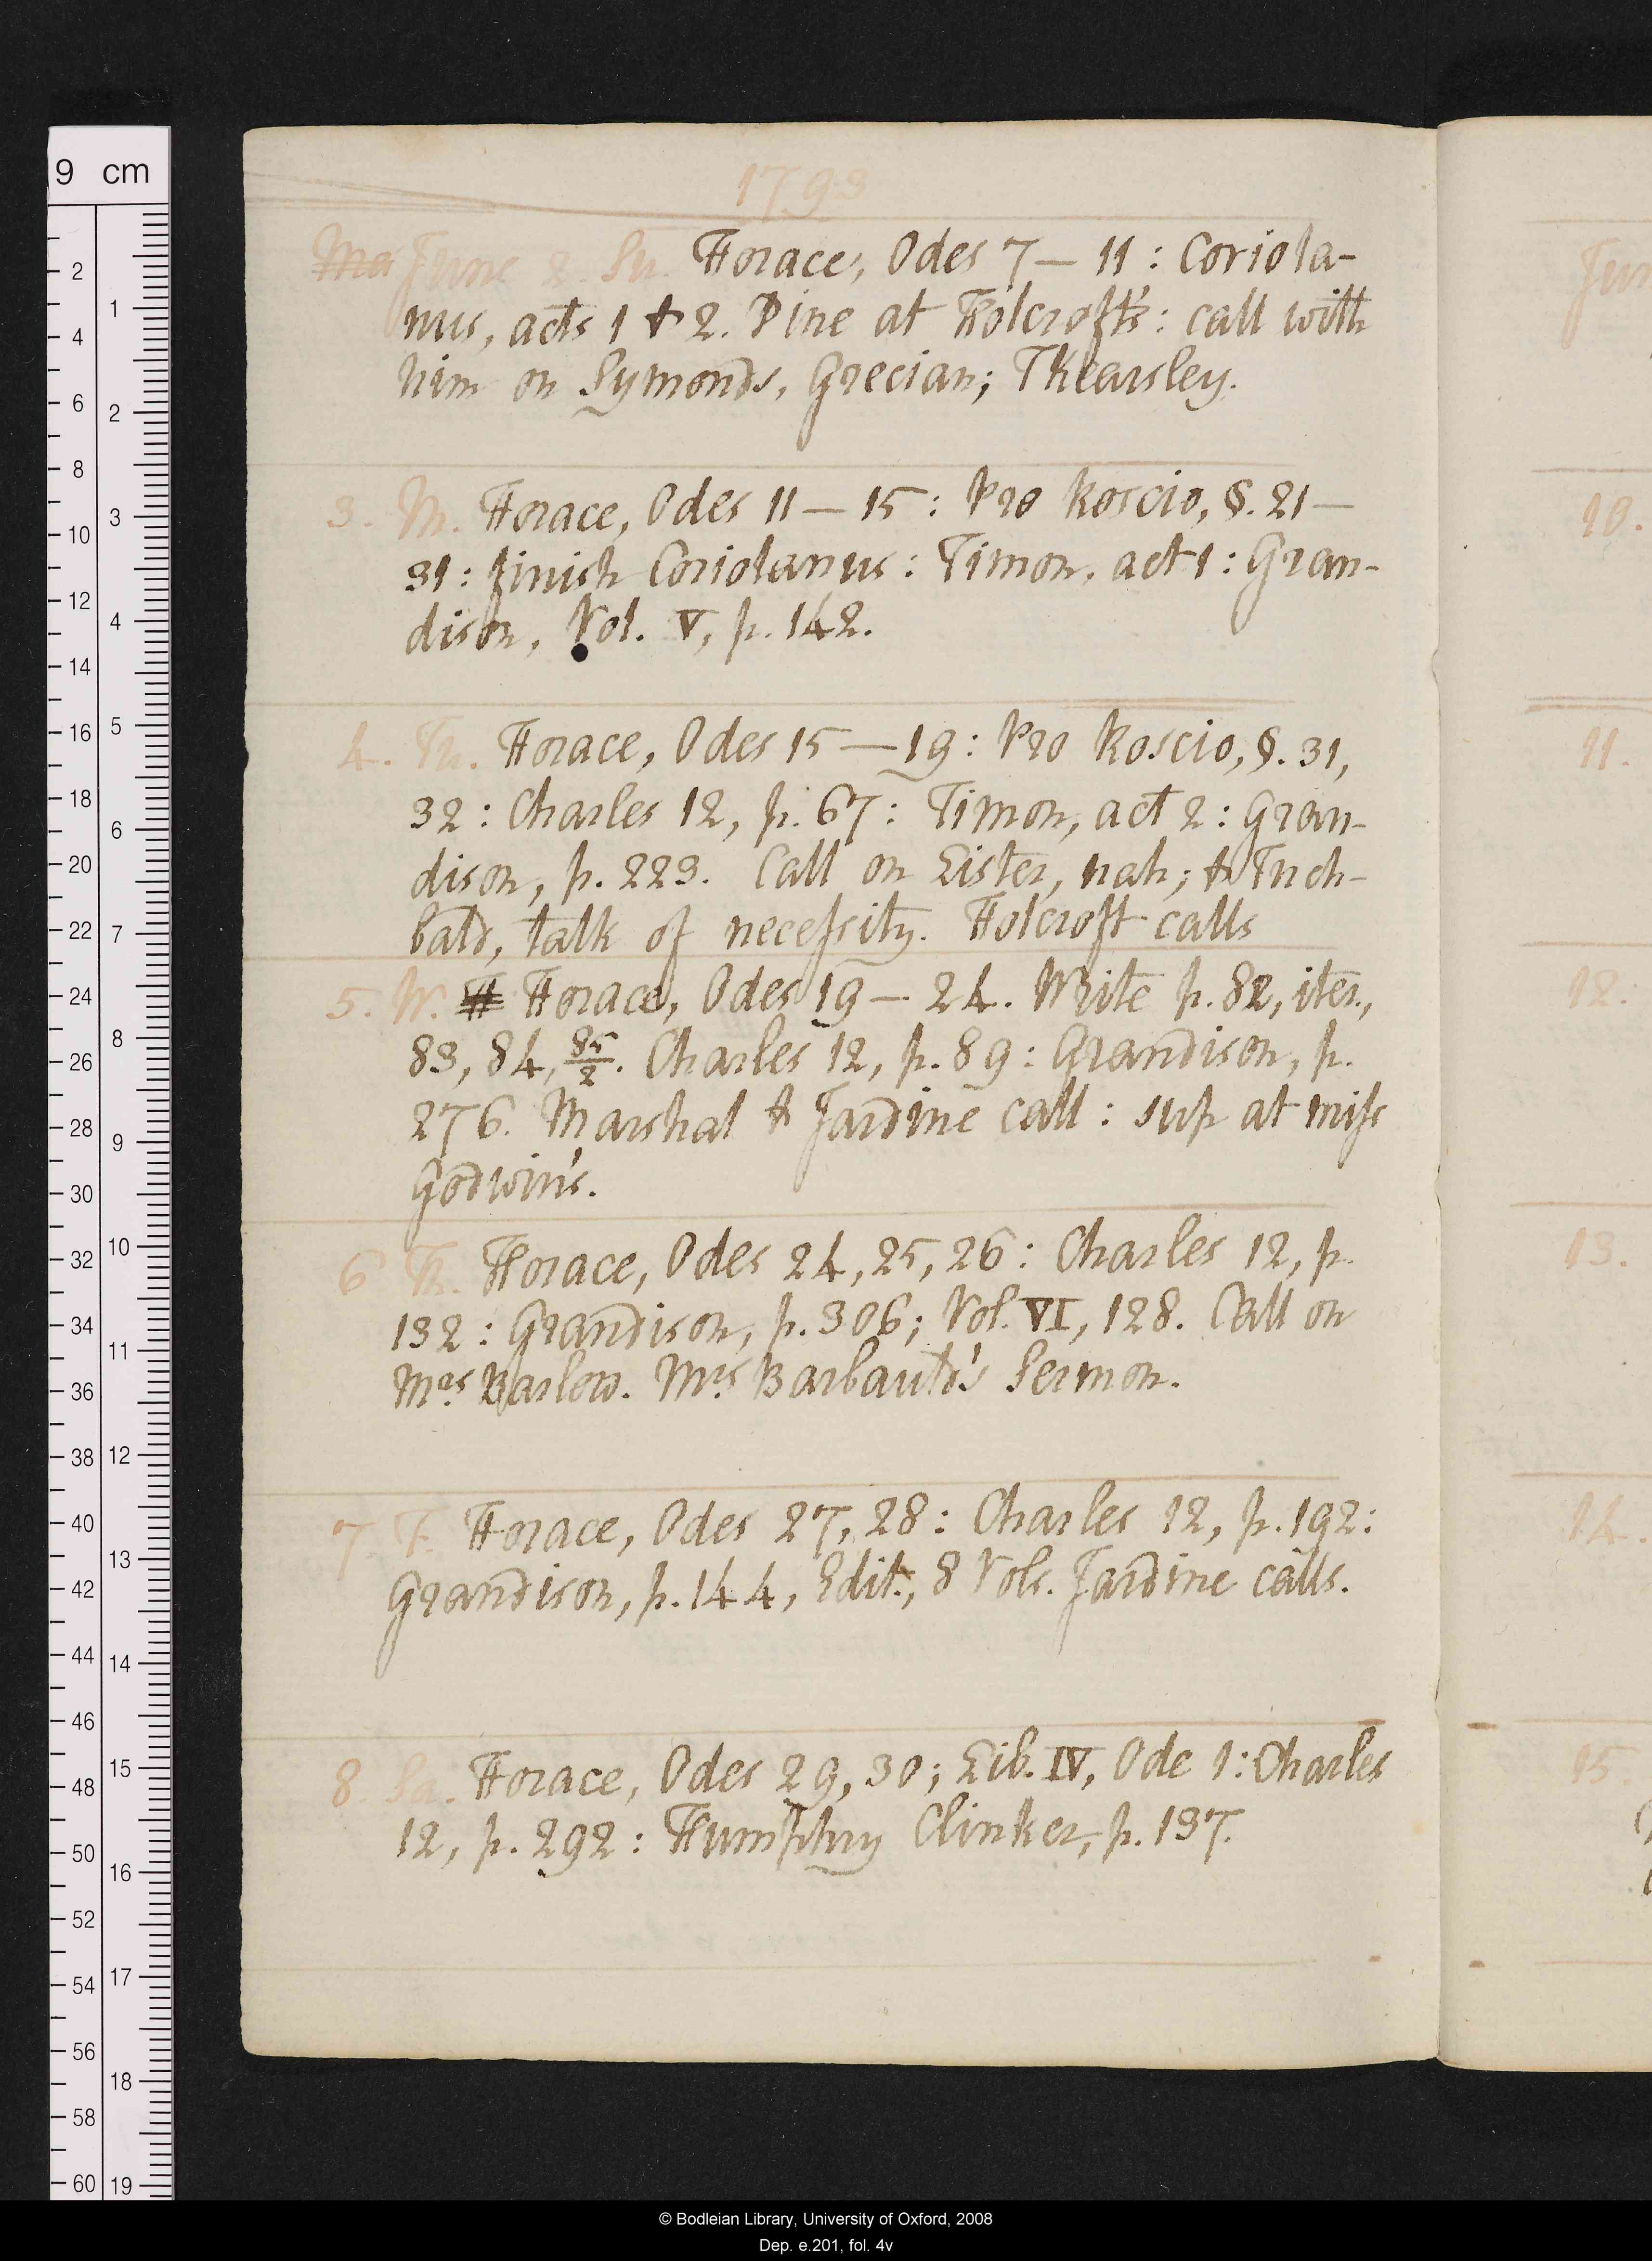 1793
Ma June 2. Su. Horace, Odes 7—11: Coriola-
nus, acts 1 & 2. Dine at Holcroft's: call with
him on Symonds, Grecian; Tkearsley.
3. M. Horace, Odes 11—15: Pro Roscio, §. 21—
31: finish Coriolanus: Timon, act 1: Gran-
dison, Vol. V, p. 142.
4. Tu. Horace, Odes 15—19: Pro Roscio, §. 31,
32: Charles 12, p. 67: Timon, act 2: Gran-
dison, p. 223. Call on Lister, nah; & Inch-
bald, talk of necessity. Holcroft calls
5. W. H Horace, Odes 19—24. Write p. 82, iter.,
83, 84, 85/2. Charles 12, p. 89: Grandison, p.
276. Marshal & Jardine call: sup at miss
Godwin's.
6 Th. Horace, Odes 24, 25, 26: Charles 12, p.
132: Grandison, p. 306; Vol. VI, 128. Call on
Mrs Barlow. Mrs Barbauld's Sermon.
7 F. Horace, Odes 27, 28: Charles 12, p. 192:
Grandison, p. 144, Edit., 8 Vols. Jardine calls.
8. Sa. Horace, Odes 29, 30; Lib. IV, Ode 1: Charles
12, p. 292: Humphry Clinker, p. 137.
10.
11.
12.
13.
14.
15.
9 cm
2
4
6
8
10
12
14
16
18
20
22
24
26
28
30
32
34
36
38
40
42
44
46
48
50
52
54
56
58
60
1
2
3
4
5
6
7
8
9
10
11
12
13
14
15
16
17
18
19
© Bodleian Library, University of Oxford, 2008
Dep. e.201, fol. 4v